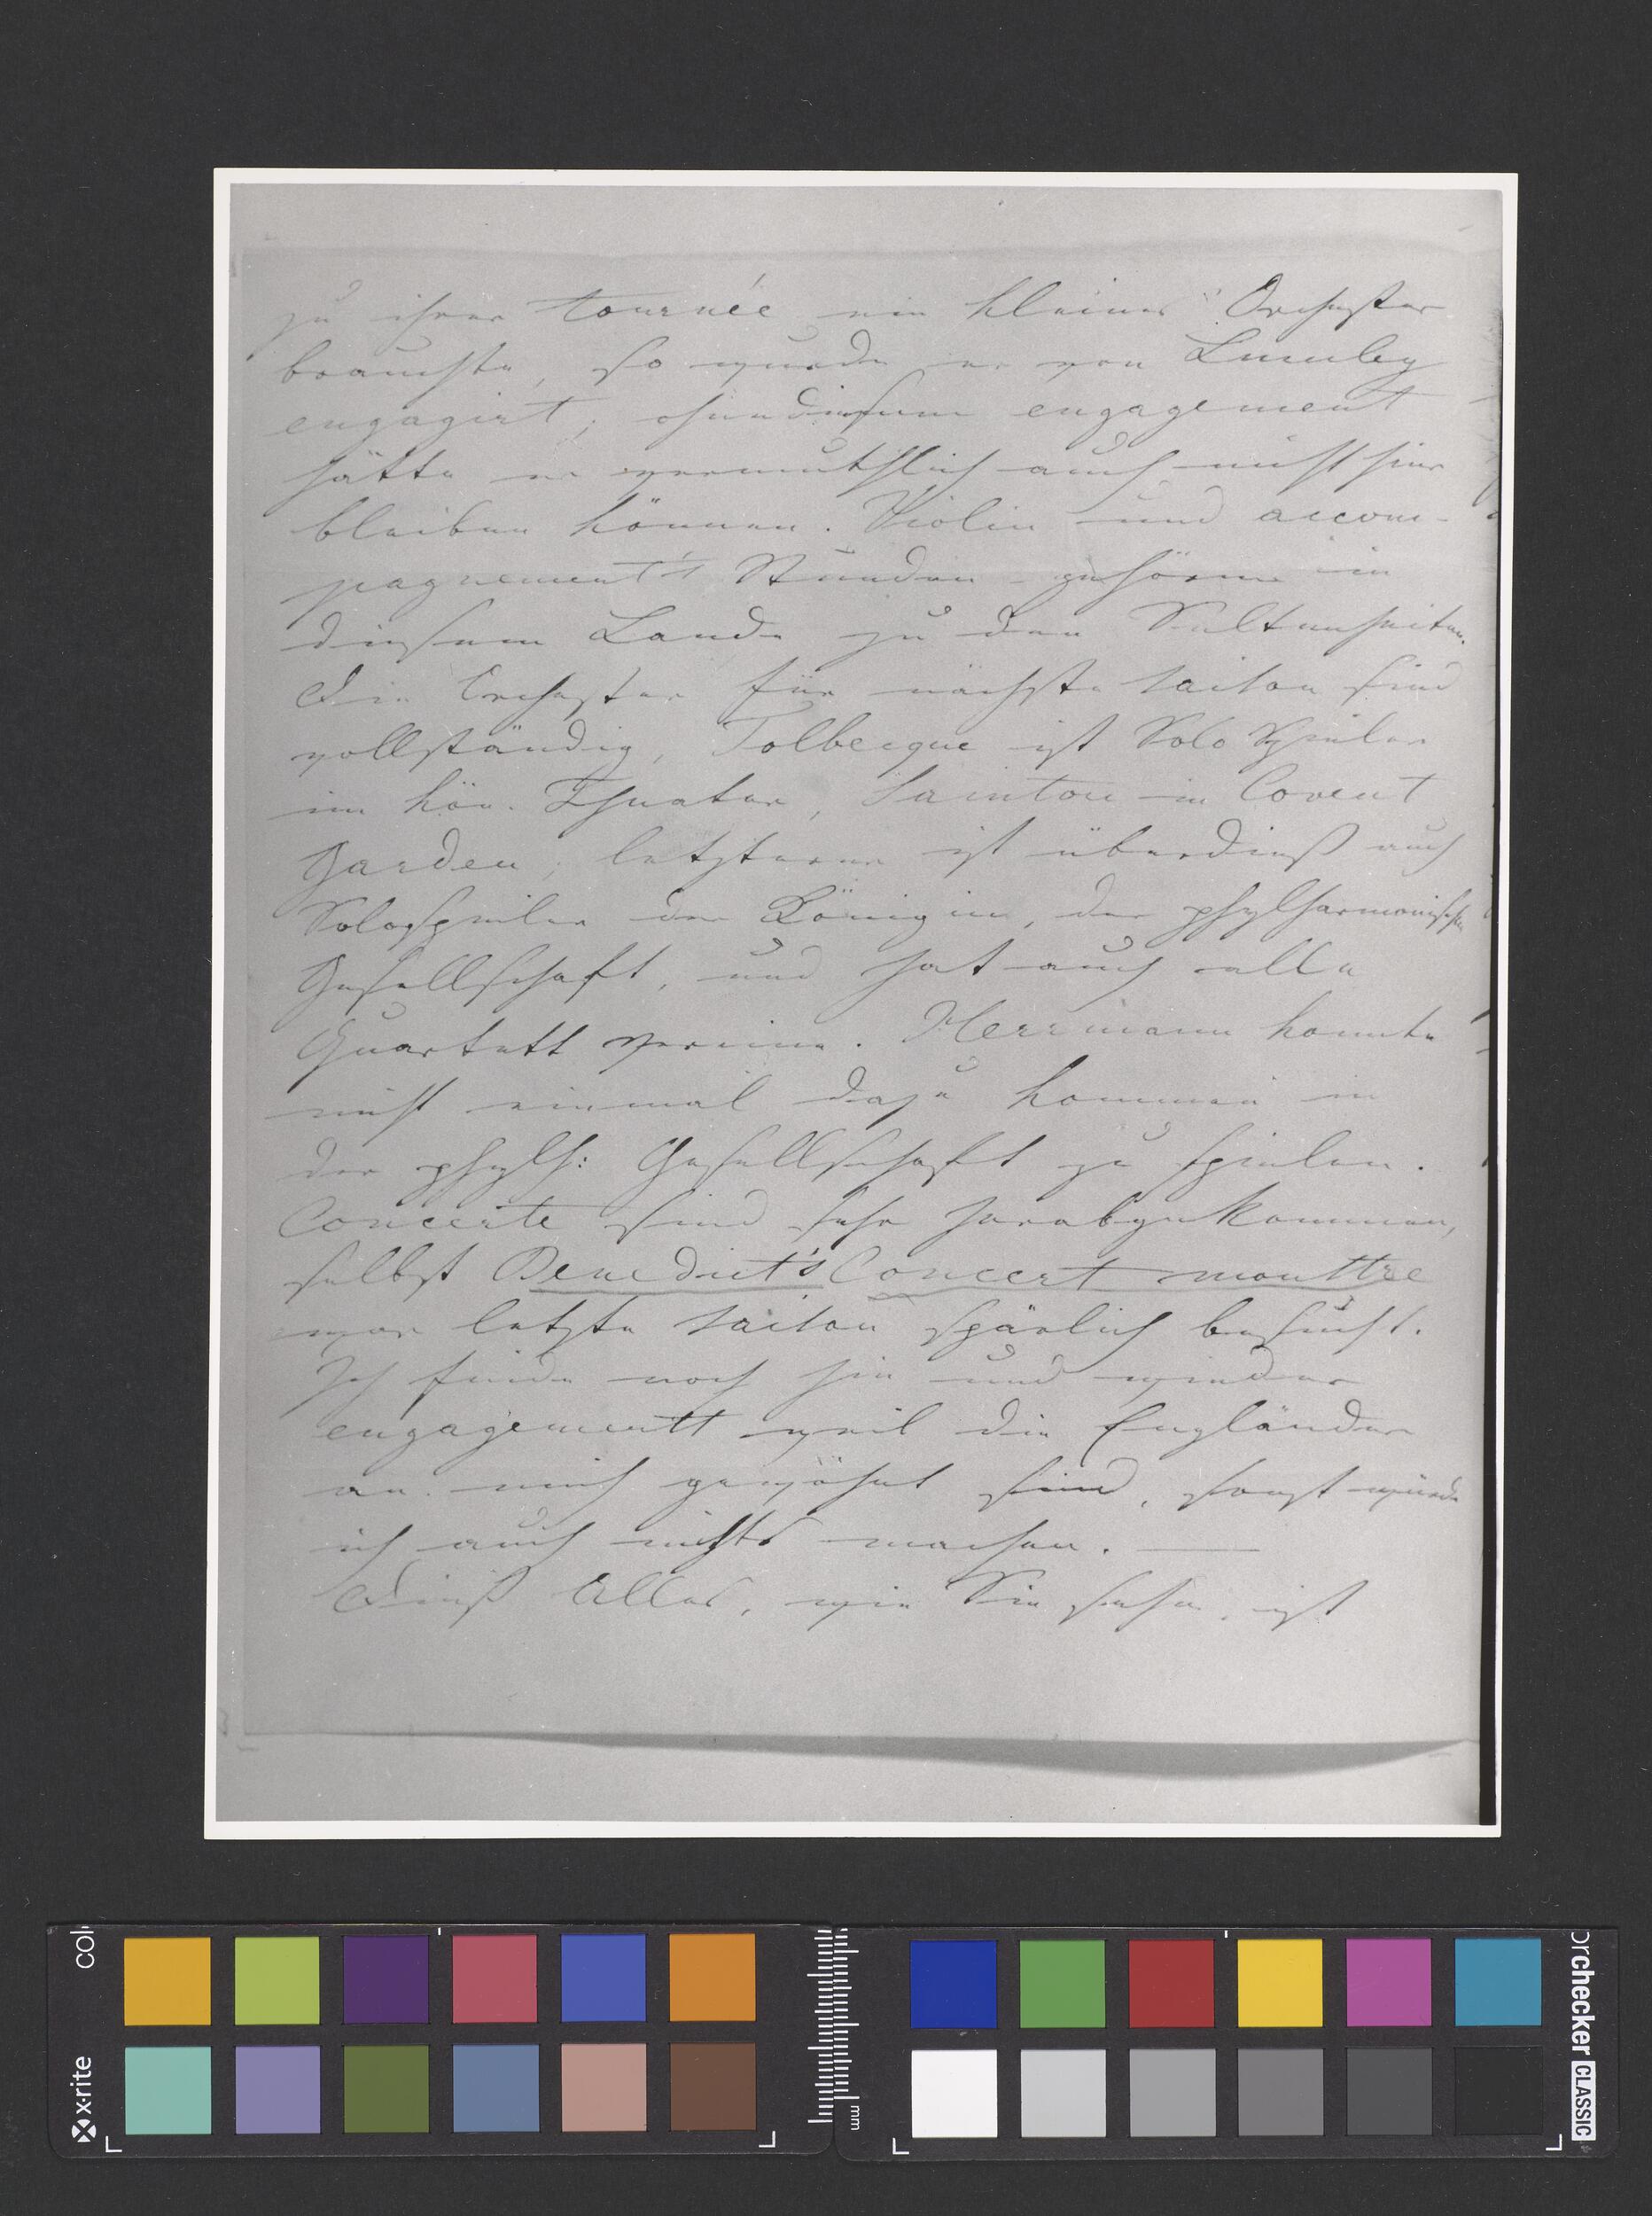 zu ihrer tournée ein kleines Orchester
brauchte, so wurde er von Lumley
engagirt; ohne diesem engagement
hätte er vermuthlich auch nicht hier
bleiben können. Violin und accom-
pagnement's Stunden gehören in
diesem Lande zu den Seltenheiten.
Die Orchester für nächste saison sind
vollständig, Tolbecque ist Solo Spieler
im kön. Theater, Sainton in Covent
Garden; letzterer ist überdieß auch
Solospieler der Königin, der phylharmonischen
Gesellschaft, und hat auch alle
Quartett vereine. Herrmann konnte
nicht einmal dazu kommen in
der phylh: Gesellschaft zu spielen.
Concerte sind sehr herabgekommen,
selbst Benedict's Concert monstre
war letzte saison spärlich besucht.
Ich finde noch hie und wieder
engagements weil die Engländer
an mich gewöhnt sind, sonst würde
ich auch nichts machen. —
Dieß Alles, wie Sie sehen, ist
x-rite
col
mm
orchecker CLASSIC